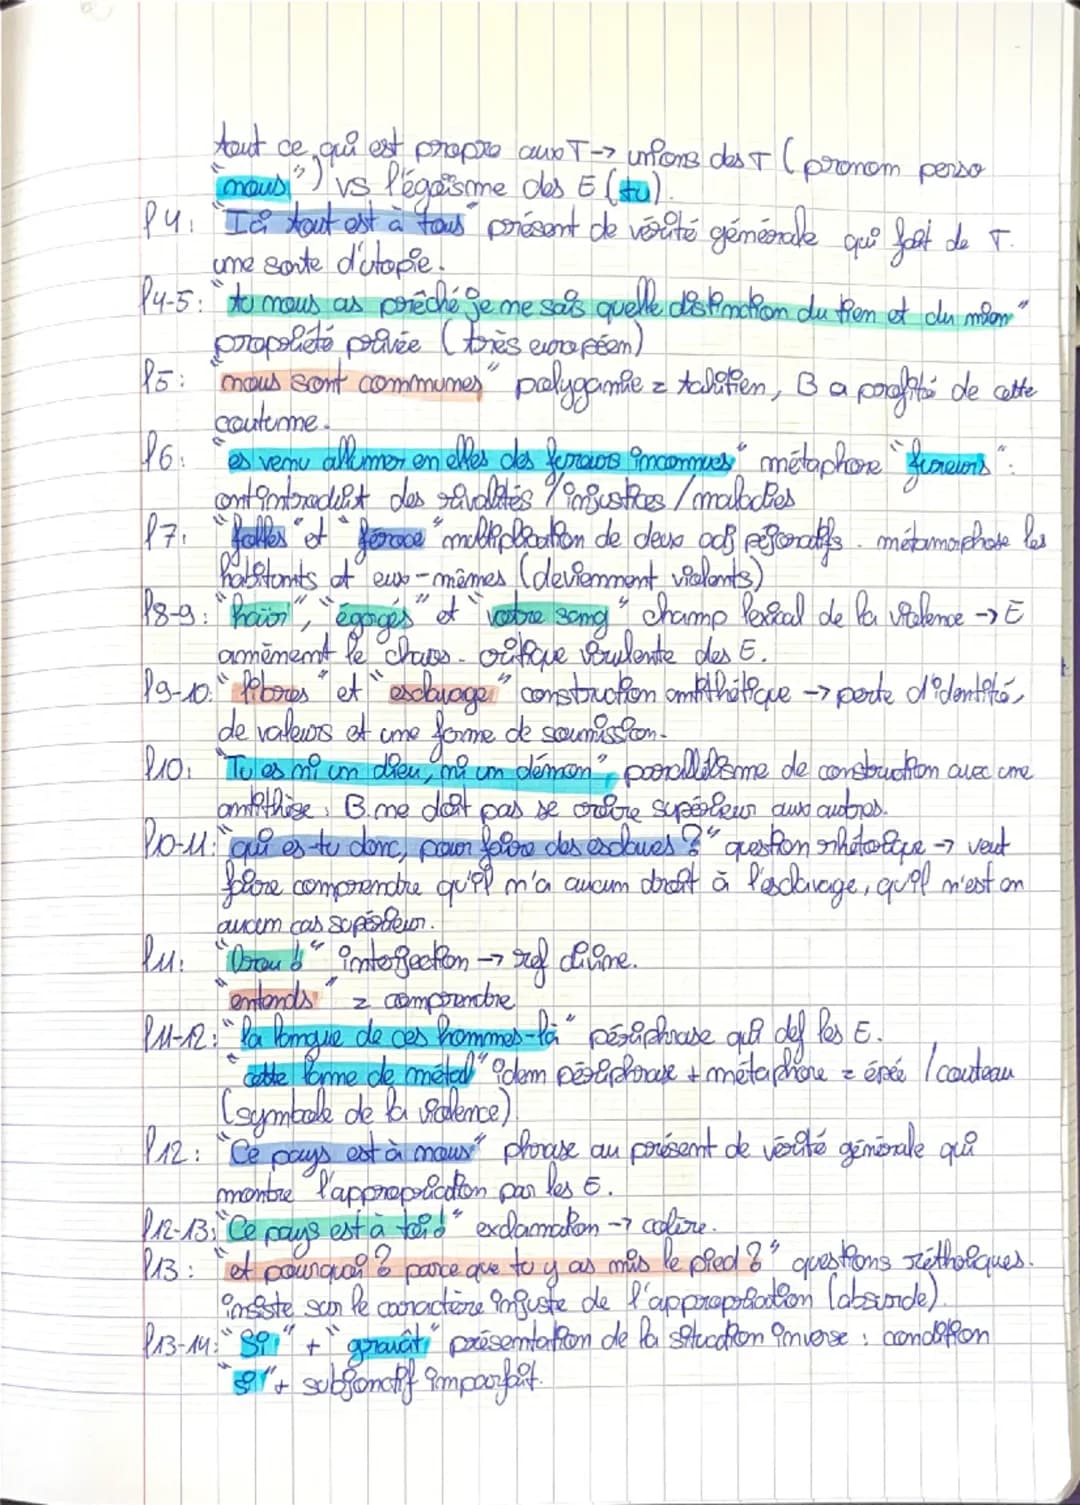 tout ce qui est propre aux T → unions des T (pronom perso
"nous") vs l'égoïsme des E (tu).
l4: "Ici tout est à tous" présent de vérité générale qui fait de T.
une sorte d'utopie.
l4-5: "tu nous as prêché je ne sais quelle distinction du tien et du mien"
propriété privée (très européen)
l5: "nous sont communes" polygamie = tahitien, B a profité de cette
coutume.
l6: "es venu allumer en elles des fureurs inconnues" métaphore "fureurs":
ont introduit des rivalités / injustices / maladies
l7: "folles" et "féroce" multiplication de deux adj péjoratifs. métamorphose les
habitants et eux-mêmes (deviennent violents)
l8-9: "haïr", "égorgés" et "votre sang" champ lexical de la violence → E
amènent le chaos. critique virulente des E.
l9-10: "libres" et "esclavage" construction antithétique → perte d'identité,
de valeurs et une forme de soumission.
l10: "Tu es ni un dieu, ni un démon" parallélisme de construction avec une
antithèse, B. ne doit pas se croire supérieur aux autres.
l10-11: "qui es-tu donc, pour faire des esclaves?" question rhétorique → veut
faire comprendre qu'il n'a aucun droit à l'esclavage, qu'il n'est en
aucun cas supérieur.
l11: "Orou!" interjection → ref divine.
"entends" = comprendre
l11-12: "la langue de ces hommes-là" périphrase qui def les E.
"cette lame de métal" idem périphrase + métaphore = épée / couteau
(symbole de la violence)
l12: "Ce pays est à nous" phrase au présent de vérité générale qui
montre l'appropriation par les E.
l12-13: "Ce pays est à toi!" exclamation → colère.
l13: "et pourquoi? parce que tu y as mis le pied?" questions réthoriques.
insiste sur le caractère injuste de l'appropriation (absurde).
l13-14: "Si" + "gravât" présentation de la situation inverse: condition
"si" + subjonctif imparfait.